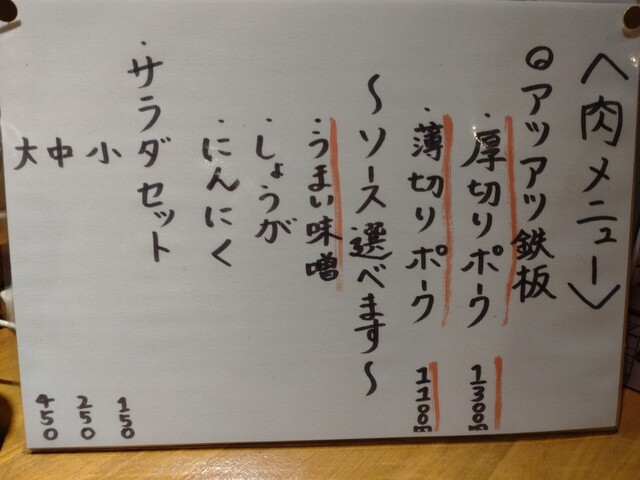 〈肉メニュー〉
◎アツアツ鉄板
・厚切りポーク 1300円
・薄切りポーク 1100円
～ソース選べます～
・うまい味噌
・しょうが
・にんにく
・サラダセット
小 150
中 250
大 450